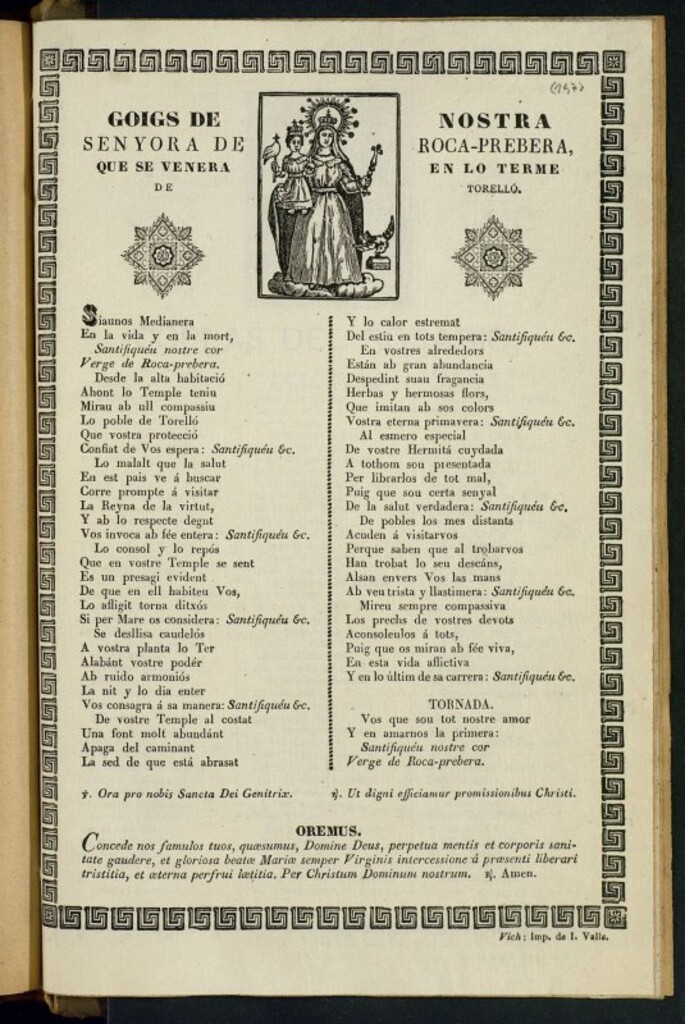 (157)
GOIGS DE NOSTRA
SENYORA DE ROCA-PREBERA,
QUE SE VENERA EN LO TERME
DE TORELLÓ.
Siaunos Medianera
En la vida y en la mort,
Santifiquéu nostre cor
Verge de Roca-prebera.
Desde la alta habitació
Ahont lo Temple teniu
Mirau ab ull compassiu
Lo poble de Torelló
Que vostra protecció
Confiat de Vos espera: Santifiquéu &c.
Lo malalt que la salut
En est pais ve á buscar
Corre prompte á visitar
La Reyna de la virtut,
Y ab lo respecte degut
Vos invoca ab fée entera: Santifiquéu &c.
Lo consol y lo repós
Que en vostre Temple se sent
Es un presagi evident
De que en ell habiteu Vos,
Lo afligit torna ditxós
Si per Mare os considera: Santifiquéu &c.
Se desllisa caudelós
A vostra planta lo Ter
Alabánt vostre podér
Ab ruido armoniós
La nit y lo dia enter
Vos consagra á sa manera: Santifiquéu &c.
De vostre Temple al costat
Una font molt abundánt
Apaga del caminant
La sed de que está abrasat
Y lo calor estremat
Del estiu en tots tempera: Santifiquéu &c.
En vostres alrededors
Están ab gran abundancia
Despedint suau fragancia
Herbas y hermosas flors,
Que imitan ab sos colors
Vostra eterna primavera: Santifiquéu &c.
Al esmero especial
De vostre Hermitá cuydada
A tothom sou presentada
Per librarlos de tot mal,
Puig que sou certa senyal
De la salut verdadera: Santifiquéu &c.
De pobles los mes distants
Acuden á visitarvos
Perque saben que al trobarvos
Han trobat lo seu descáns,
Alsan envers Vos las mans
Ab veu trista y llastimera: Santifiquéu &c.
Mireu sempre compassiva
Los prechs de vostres devots
Aconsoleulos á tots,
Puig que os miran ab fée viva,
En esta vida aflictiva
Y en lo últim de sa carrera: Santifiquéu &c.
TORNADA.
Vos que sou tot nostre amor
Y en amarnos la primera:
Santifiquéu nostre cor
Verge de Roca-prebera.
℣. Ora pro nobis Sancta Dei Genitrix. ℟. Ut digni efficiamur promissionibus Christi.
OREMUS.
Concede nos famulos tuos, quæsumus, Domine Deus, perpetua mentis et corporis sani-
tate gaudere, et gloriosa beatæ Mariæ semper Virginis intercessione á præsenti liberari
tristitia, et æterna perfrui lætitia. Per Christum Dominum nostrum. ℟. Amen.
Vich: Imp. de I. Valls.